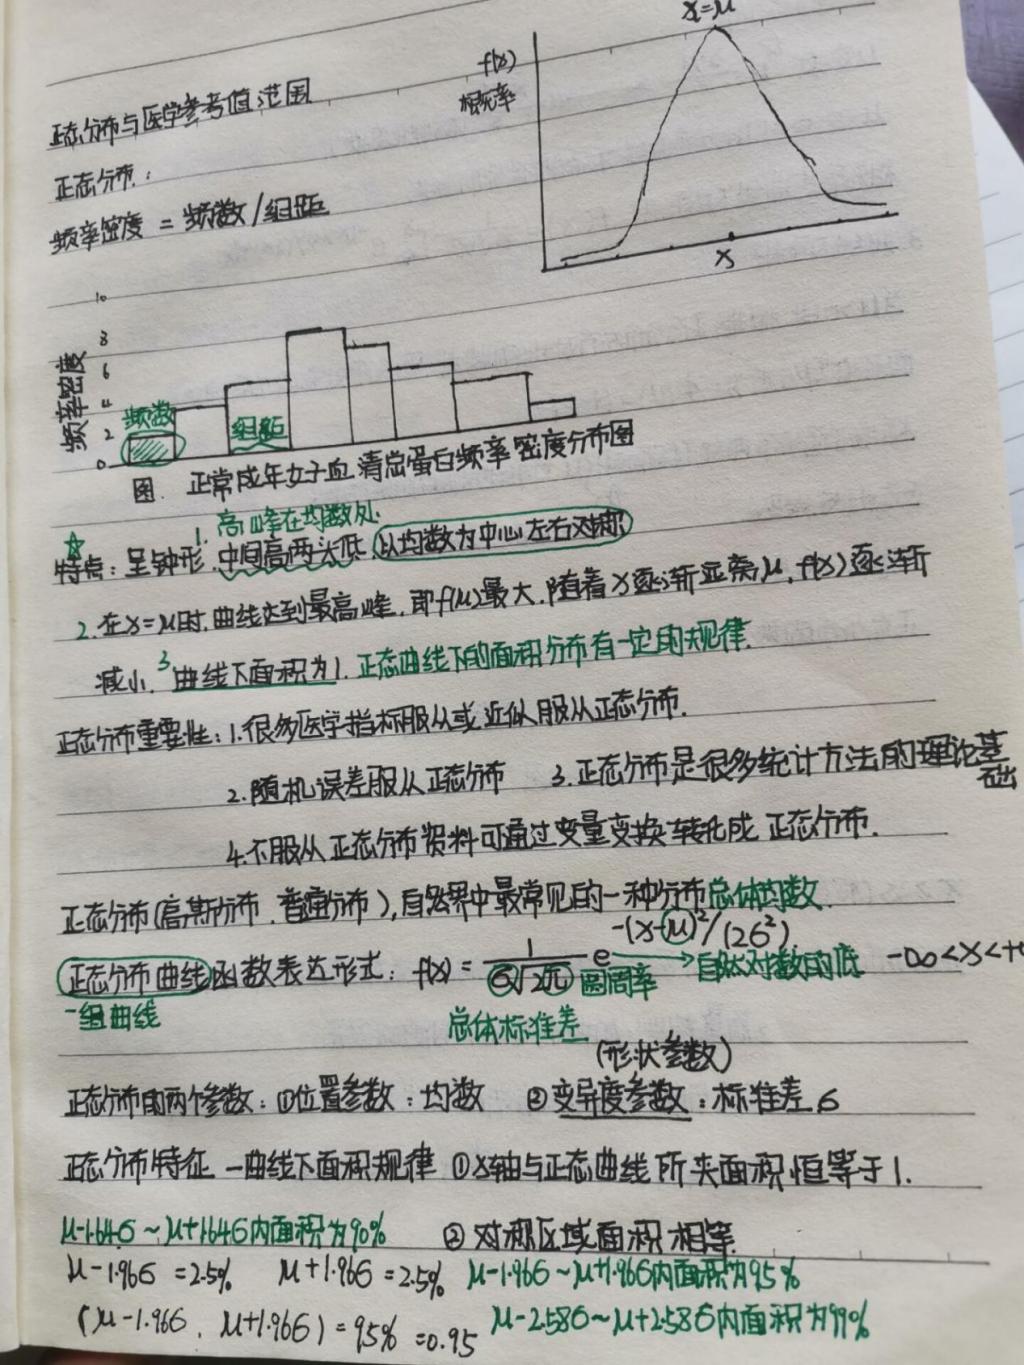 x=μ
f(x)
概率
正态分布与医学参考值范围
正态分布:
频率密度 = 频数/组距
x
10
8
6
4
2
0
频率密度
频数
组距
图. 正常成年女子血清总蛋白频率密度分布图
1. 高峰在均数处.
☆
特点: 呈钟形. 中间高两头低, 以均数为中心左右对称
2. 在x=μ时. 曲线达到最高峰. 即f(μ)最大. 随着x逐渐远离μ, f(x)逐渐
减小. 3 曲线下面积为1. 正态曲线下的面积分布有一定的规律.
正态分布重要性: 1.很多医学指标服从或近似服从正态分布.
2.随机误差服从正态分布 3.正态分布是很多统计方法的理论基
础
4.不服从正态分布资料可通过变量变换转化成正态分布.
正态分布(高斯分布. 普通分布), 自然界中最常见的一种分布总体均数
正态分布曲线函数表达形式: f(x) = 1/σ√2π e -(x-μ)²/(2σ²) → 自然对数的底 -∞<x<+
一组曲线 圆周率
总体标准差
(形状参数)
正态分布的两个参数: ①位置参数: 均数 ②变异度参数: 标准差σ
正态分布特征 - 曲线下面积规律 ①x轴与正态曲线所夹面积恒等于1.
μ-1.64σ ~ μ+1.64σ内面积为90% ②对称区域面积相等
μ-1.96σ =2.5% μ+1.96σ =2.5% μ-1.96σ ~ μ+1.96σ内面积为95%
(μ-1.96σ, μ+1.96σ) = 95% =0.95 μ-2.58σ ~ μ+2.58σ内面积为99%